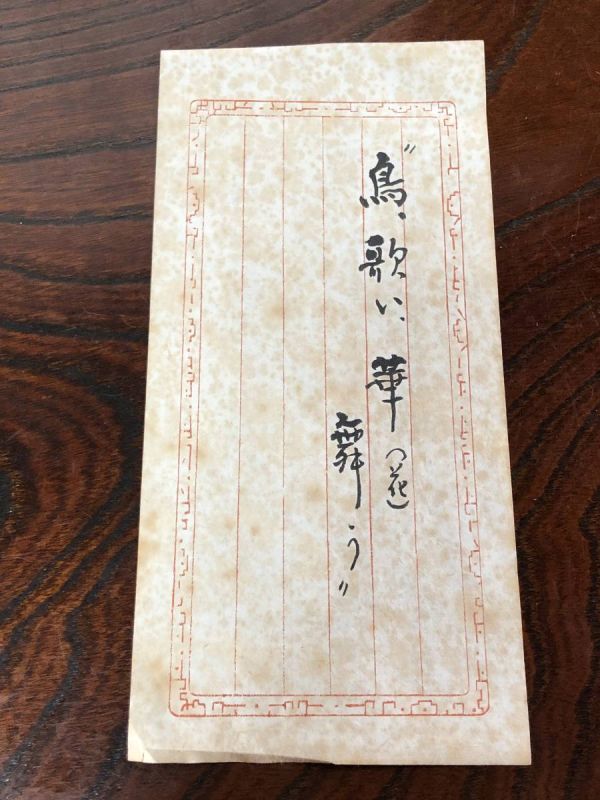 〝鳥、歌い、華(花)
舞う〟